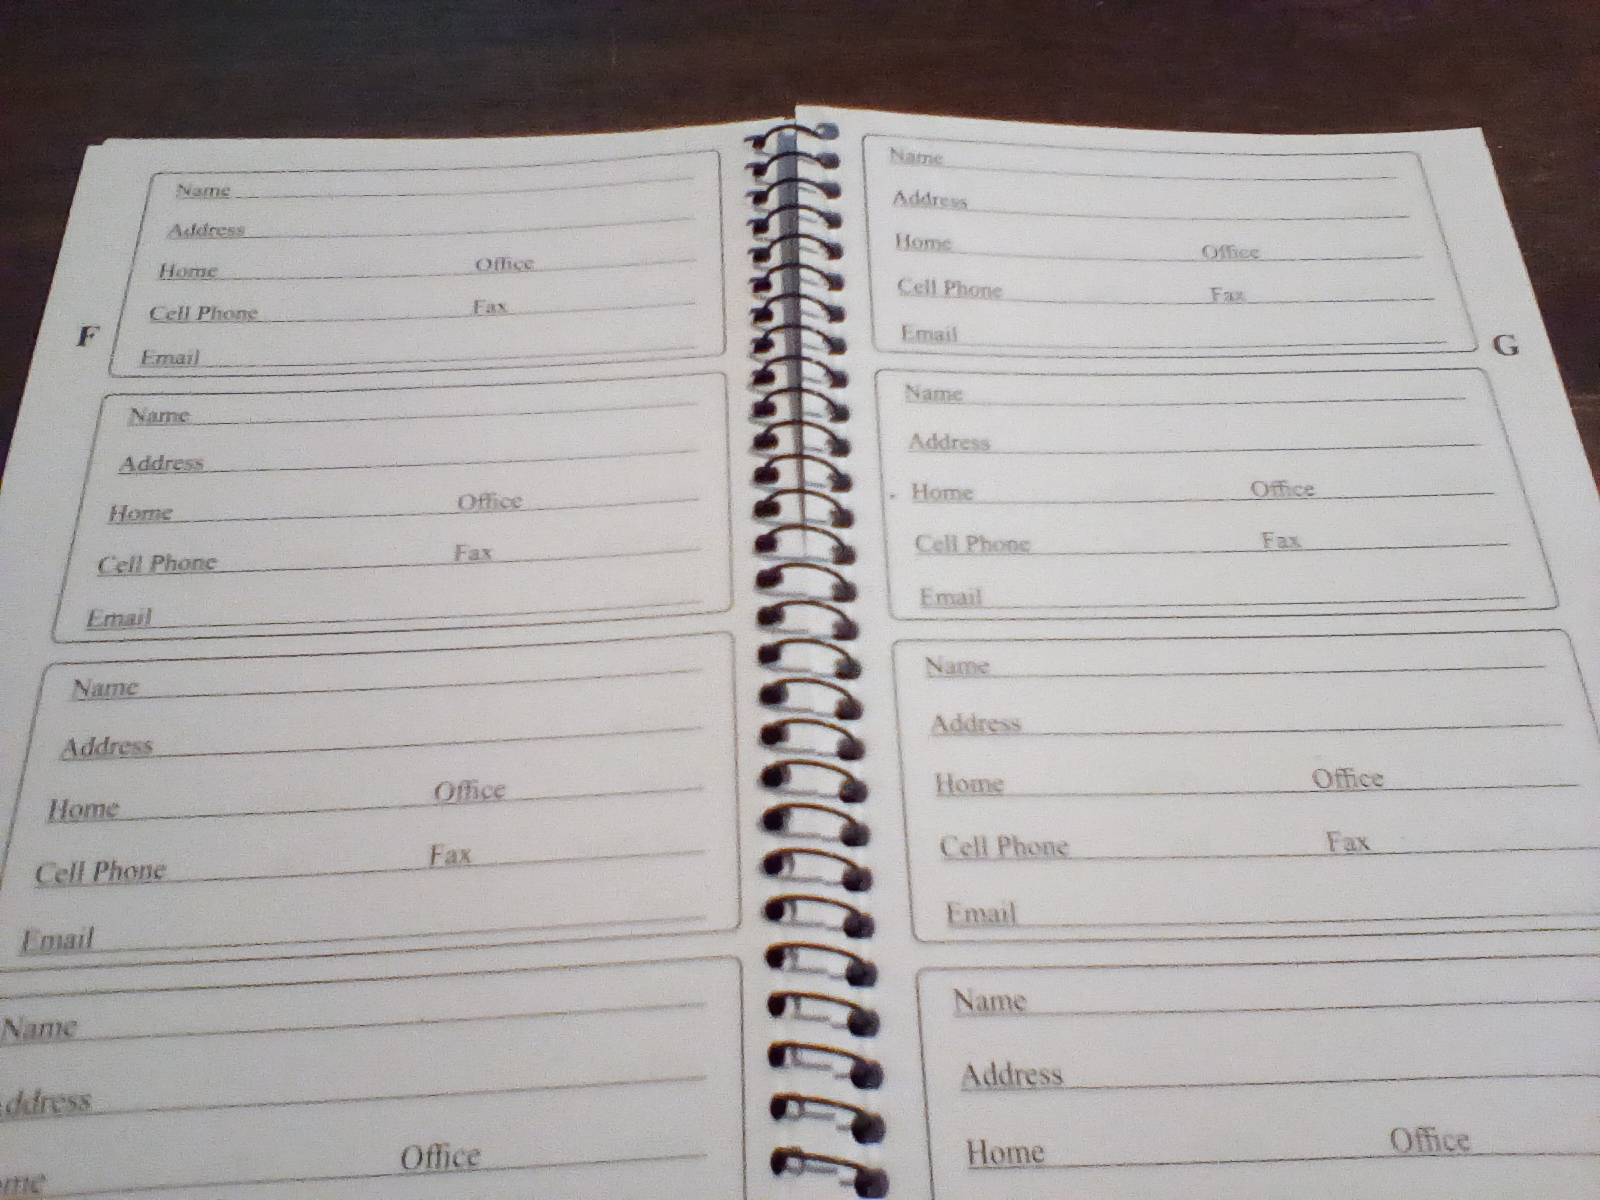 F
Name
Address
Home Office
Cell Phone Fax
Email
Name
Address
Home Office
Cell Phone Fax
Email
Name
Address
Home Office
Cell Phone Fax
Email
Name
ddress
me Office
G
Name
Address
Home Office
Cell Phone Fax
Email
Name
Address
Home Office
Cell Phone Fax
Email
Name
Address
Home Office
Cell Phone Fax
Email
Name
Address
Home Office